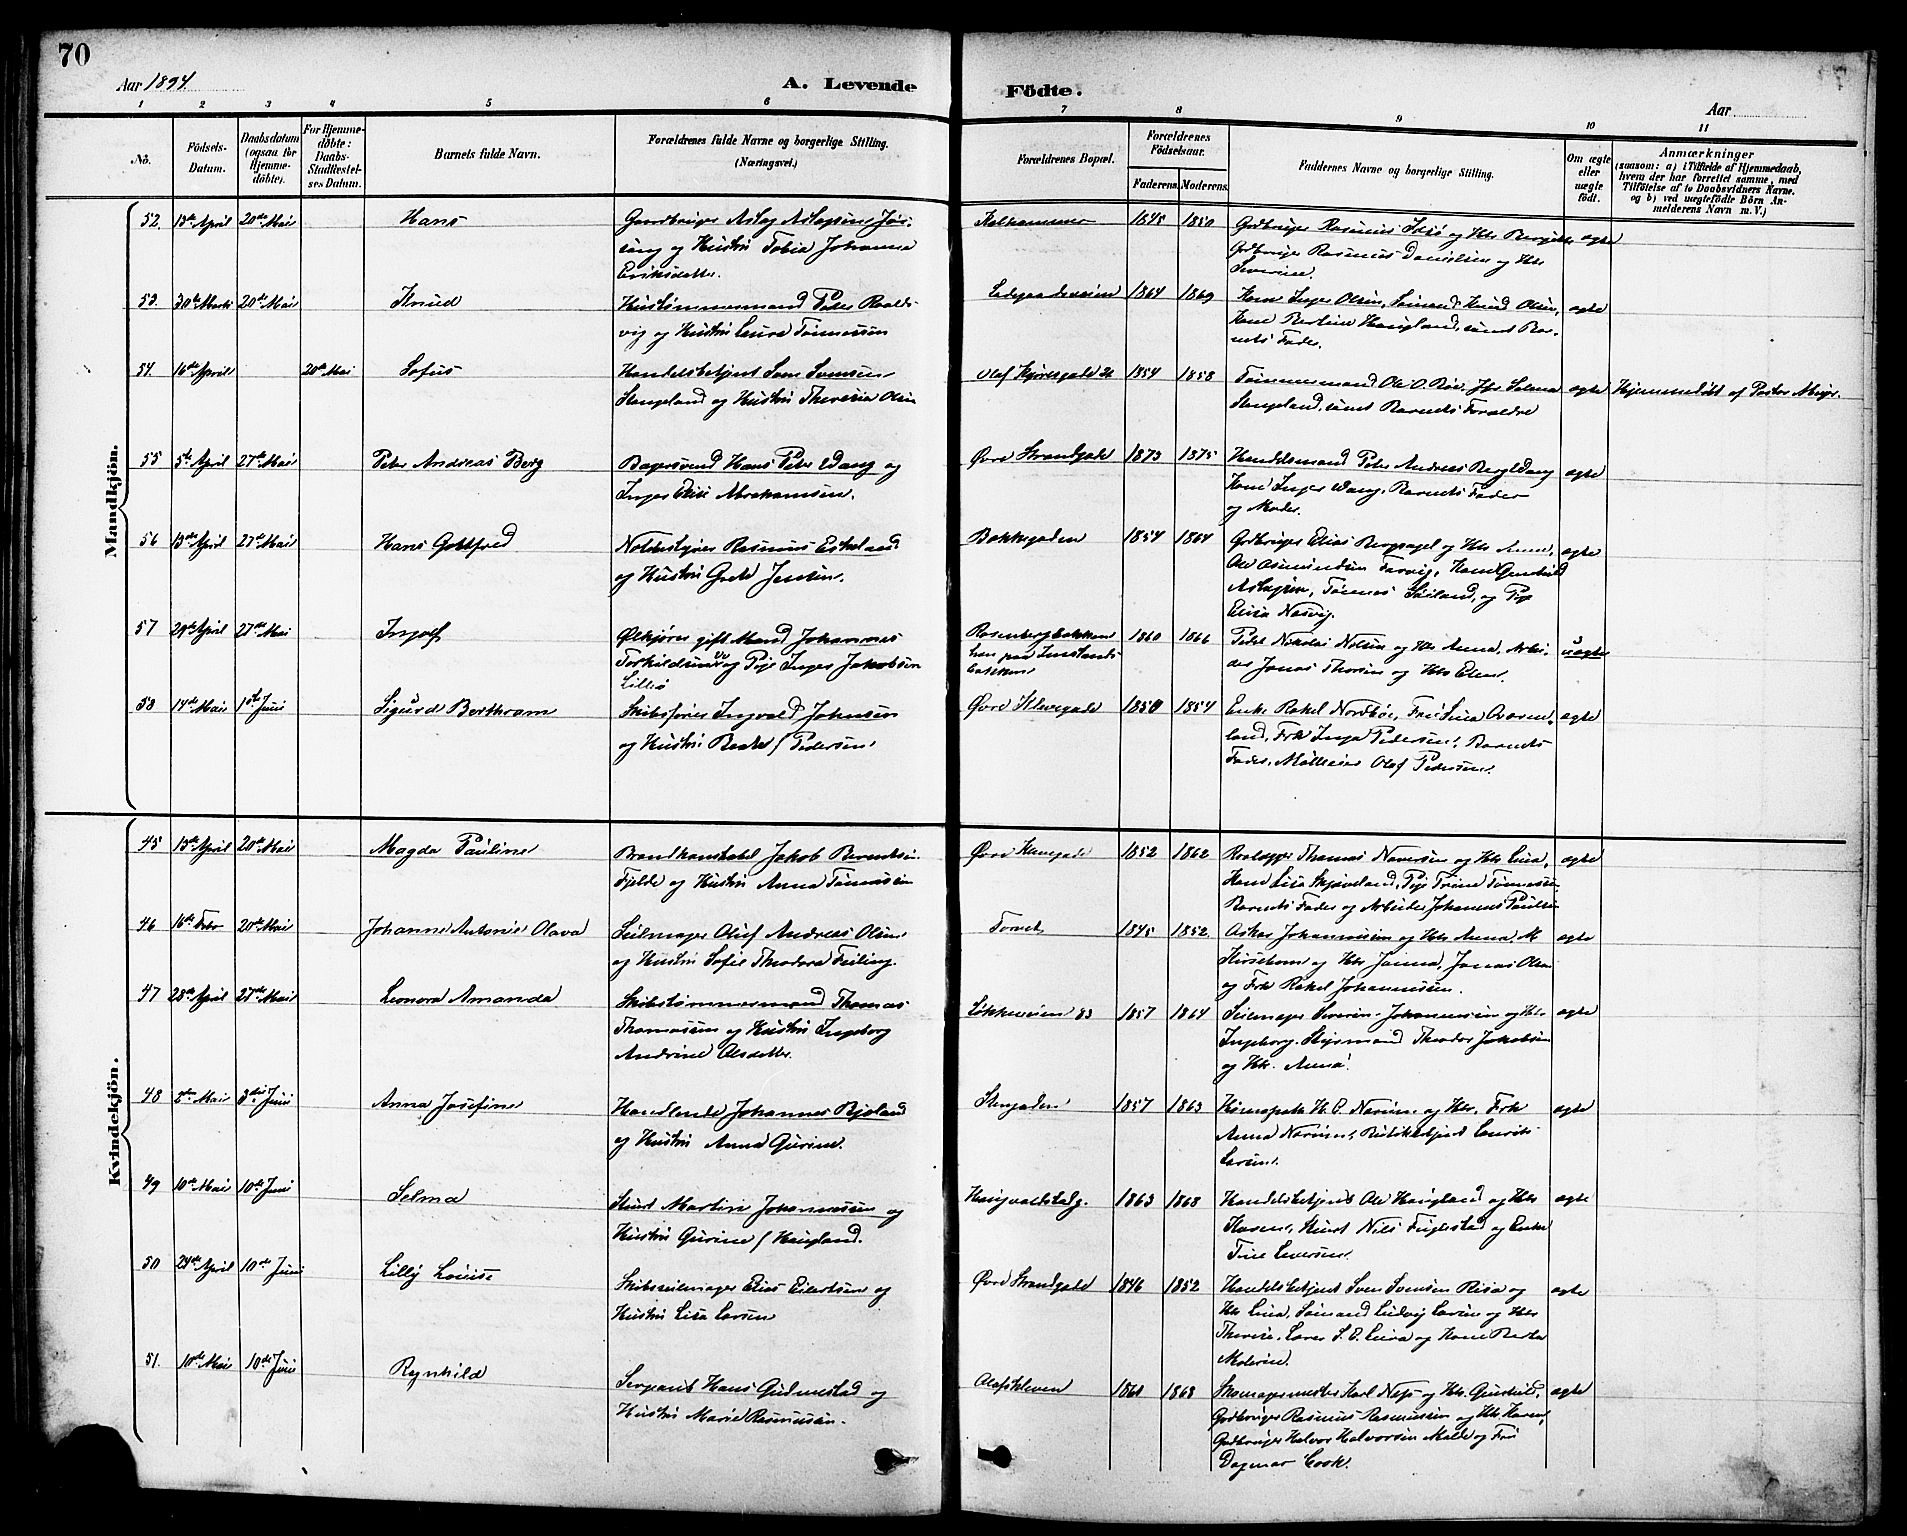 70
Aar 1894.
A. Levende
Fødte.
Aar
1 2 3 4 5 6 7 8 9 10 11
No.
Fødsels-
Datum.
Daabsdatum
(ogsaa for
Hjemme-
døbte).
For Hjemme-
døbte:
Daabs-
Stadfæstel-
ses Datum.
Barnets fulde Navn.
Forældrenes fulde Navne og borgerlige Stilling.
(Næringsvei.)
Forældrenes Bopæl.
Forældrenes
Fødselsaar.
Faderens.
Moderens.
Faddernes Navne og borgerlige Stilling.
Om ægte
eller
uægte
født.
Anmærkninger
(saasom: a) i Tilfælde af Hjemmedaab,
hvem der har forrettet samme, med
Tilføielse af to Daabsvidners Navne,
og b) ved uægtefødte Børn An-
melderens Navn m. V.)
Mandkjøn.
52. 13de April 20de Mai Hans
Gaardbruger Aslag Aslagsen
og Hustru Tobia Johanne
Eriksdatter.
Kalhammer 1845 1850
Gdbruger Rasmus og Hst
Gdbruger Rasmus Danielsen og Hst
Severine.
ægte
53. 30te Marts 20de Mai Knud
Hustømmermand Peter Roalds-
vig og Hustru Laura Tønnessen
Ladegaardsveien 1864 1869
Kone Inger Olsen, Sømand Knud Olsen,
Kone Bertine Haugland, samt Bar-
nets Fader.
ægte
54. 16de April 20de Mai Sofus
Handelsbetjent Sven Svensen
Stangeland og Hustru Theresia Olsen
Olaf Kyrresgade 1854 1858
Tømmermand Ole O. Røe, Selma
Stangeland, samt Barnets Forældre
ægte
Hjemmedøbt af Pastor
55 5te April 27de Mai Peter Andreas Berg
Bagersvend Hans Peter Wang og
Inger Elise Abrahamsen.
Øvre Strandgade 1873 1875
Handelsmand Peter Andreas Berg Wang
Kone Inger Wang, Barnets Fader
og Moder.
ægte
56 13de April 27de Mai Hans Gottfred
Notbestyrer Rasmus Eskeland
og Hustru Grete Jensen.
Bakkegaden 1854 1864
Gdbruger Elias Bergsagel og Hst Anna,
Ole Asmundsen, Kone Gunhild
Aslagsen, Tønnes Søiland, og Pige
Elisa Nasvig.
ægte
57 29de April 27de Mai Ingolf
Ølkjører gift Mand Johannes
Torkildsen og Pige Inger Jakobsen
Lillø
Rosenbergbakken
hun paa
bakken
1860 1866
Peder Nikolai Nilsen og Hst Anna, Arbei-
der Jonas Thorsen og Hst Elen.
uægte
58 14de Mai 1ste Juni Sigurd Berthram
Skibsfører Ingvald Johnsen
og Hustru Beate f Pedersen.
Øvre Klevegade 1850 1854
Enke Rakel Nordbøe, Frk Lina
land, Frk Inga Pedersen, Barnets
Fader, Olaf Pedersen.
ægte
Kvindekjøn.
45 13de April 20de Mai Magda Pauline
Brandkonstabel Jakob Berentsen
Fjelde og Hustru Anna Tønnessen
Øvre 1852 1862
Thomas og Hst Lina,
Kone Lisa Skjæveland, Pige Trine Tønnessen,
Barnets Fader og Arbeider Johannes Paulsen
ægte
46 16de Febr 20de Mai Johanne Antonie Olava
Seilmager Oluf Andreas Olsen
og Hustru Sofie Theodora Feiling.
Torvet 1845 1852
Johannessen og Hst Anna M
og Hst Janna, Jonas Olsen
og Frk Rakel Johannessen.
ægte
47 28de April 27de Mai Leonora Amanda
Skibstømmermand Thomas
Thomassen og Hustru Ingeborg
Andrine Olsdatter.
Løkkeveien 83 1857 1864
Seilmager Severin Johannessen og Hst
Ingeborg, Styrmand Theodor Jakobsen
og Hst. Anna.
ægte
48 Mai 3die Juni Anna Josefine
Handlende Johannes Bjeland
og Hustru Anna Gurine.
Stengaden 1857 1863
og Hst, Frk
Anna, Laurits
Larsen.
ægte
49 10de Mai 10de Juni Selma
Martin Johannessen og
Hustru Gurine f Haugland.
Haugvaldstadg. 1863 1868
Handelsbetjent Ole Haugland og Hst
Karen, Nils Fuglestad og Enke
Tine Seversen.
ægte
50 24de April 10de Juni Lilly Louise
Skibsseilmager Elias Eilertsen og
Hustru Lisa Larsen
Øvre Strandgade 1846 1852
Handelsbetjent Sven Svensen Risa og
Hst Lina, Sømand Ludvig Larsen og Hst
Therese, og Kone Berta
Malerine.
ægte
51. 10de Mai 10de Juni Rynhild
Sergeant Hans Gudmestad og
Hustru Marie Rasmussen.
Olafskleven 1868
Skomagermester Karl Næss og Hst. Gunhild,
Gdbruger Rasmus Rasmussen og Hst Karen,
Gdbruger Halvor Halvorsen Malde og Frk
Dagmar Cook.
ægte